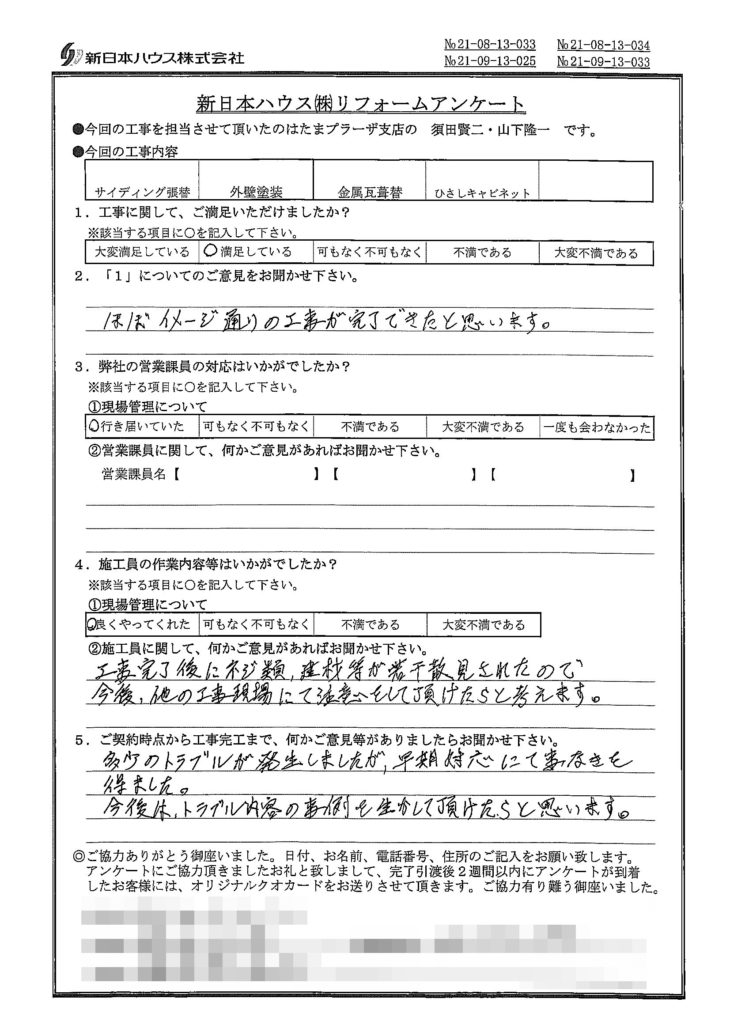 新日本ハウス株式会社
№21-08-13-033 №21-08-13-034
№21-09-13-025 №21-09-13-033
新日本ハウス㈱リフォームアンケート
●今回の工事を担当させて頂いたのはたまプラーザ支店の 須田賢二・山下隆一 です。
●今回の工事内容
サイディング張替 外壁塗装 金属瓦葺替 ひさしキャビネット
1．工事に関して、ご満足いただけましたか？
※該当する項目に○を記入して下さい。
大変満足している ○満足している 可もなく不可もなく 不満である 大変不満である
2．「1」についてのご意見をお聞かせ下さい。
ほぼイメージ通りの工事が完了できたと思います。
3．弊社の営業課員の対応はいかがでしたか？
※該当する項目に○を記入して下さい。
①現場管理について
○行き届いていた 可もなく不可もなく 不満である 大変不満である 一度も会わなかった
②営業課員に関して、何かご意見があればお聞かせ下さい。
営業課員名【 】【 】【 】
4．施工員の作業内容等はいかがでしたか？
※該当する項目に○を記入して下さい。
①現場管理について
○良くやってくれた 可もなく不可もなく 不満である 大変不満である
②施工員に関して、何かご意見があればお聞かせ下さい。
工事完了後にネジ類，建材等が若干散見されたので
今後，他の工事現場にて注意をして頂けたらと考えます。
5．ご契約時点から工事完工まで、何かご意見等がありましたらお聞かせ下さい。
多少のトラブルが発生しましたが，早期対応にて事なきを
得ました。
今後は，トラブル内容の事例を生かして頂けたらと思います。
◎ご協力ありがとう御座いました。日付、お名前、電話番号、住所のご記入をお願い致します。
アンケートにご協力頂きましたお礼と致しまして、完了引渡後2週間以内にアンケートが到着
したお客様には、オリジナルクオカードをお送りさせて頂きます。ご協力有り難う御座いました。